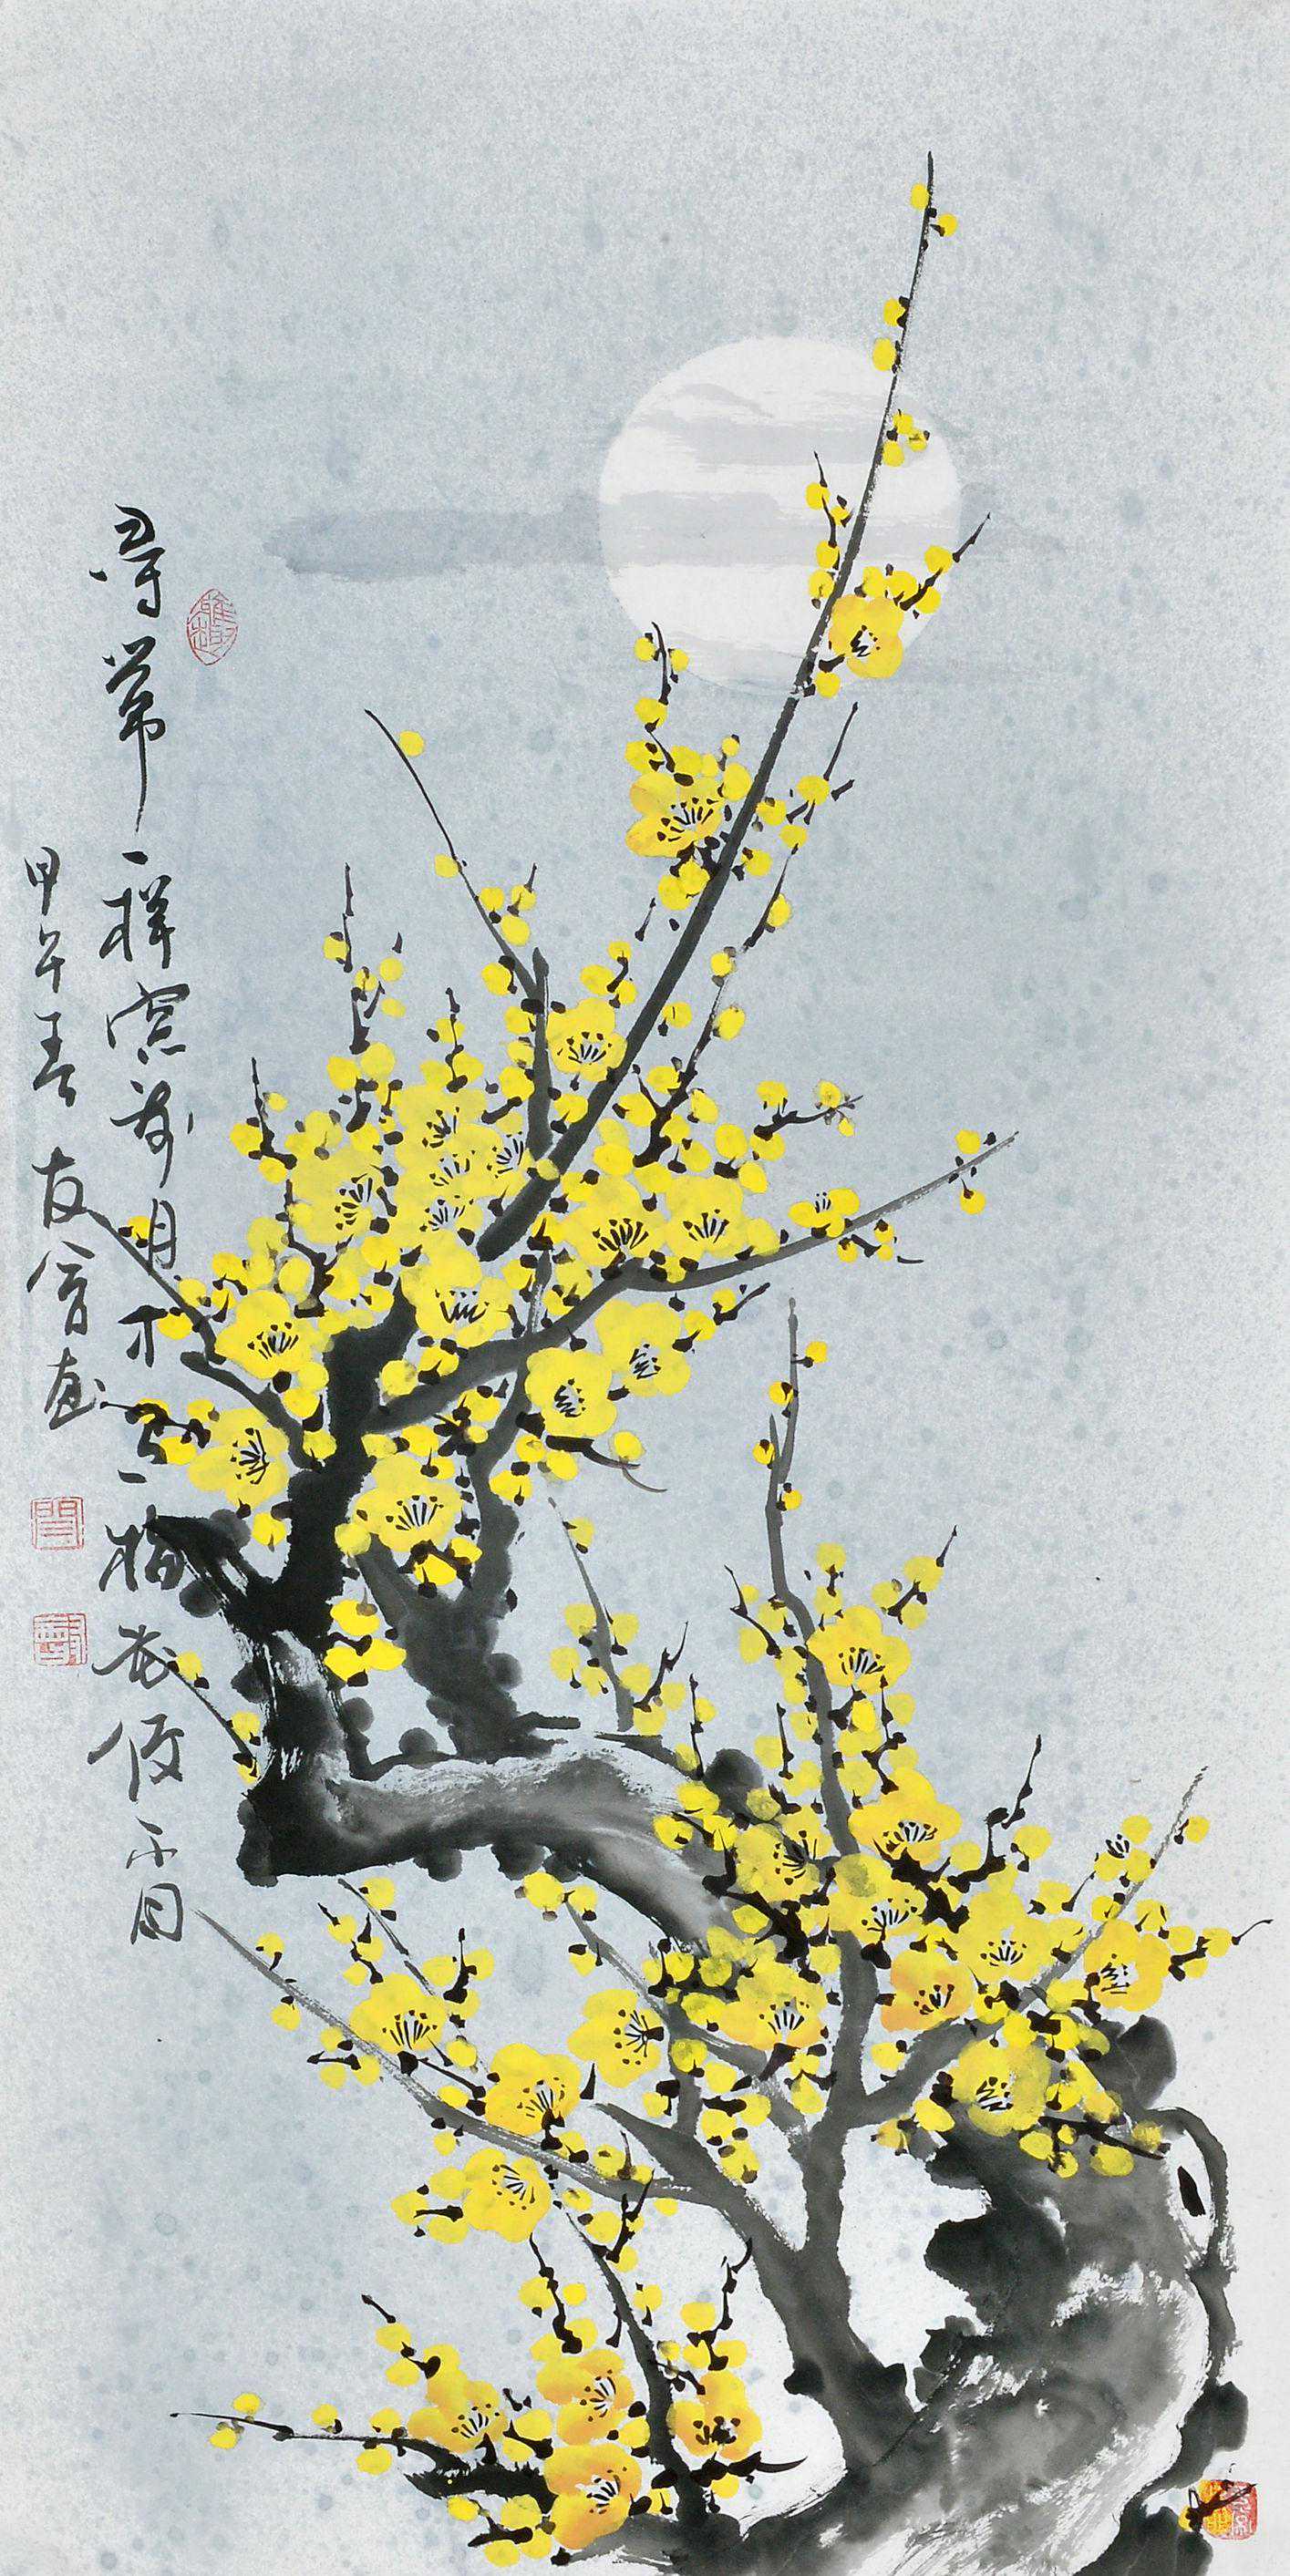 寻常一样窗前月才有梅花便不同
甲午春友会画